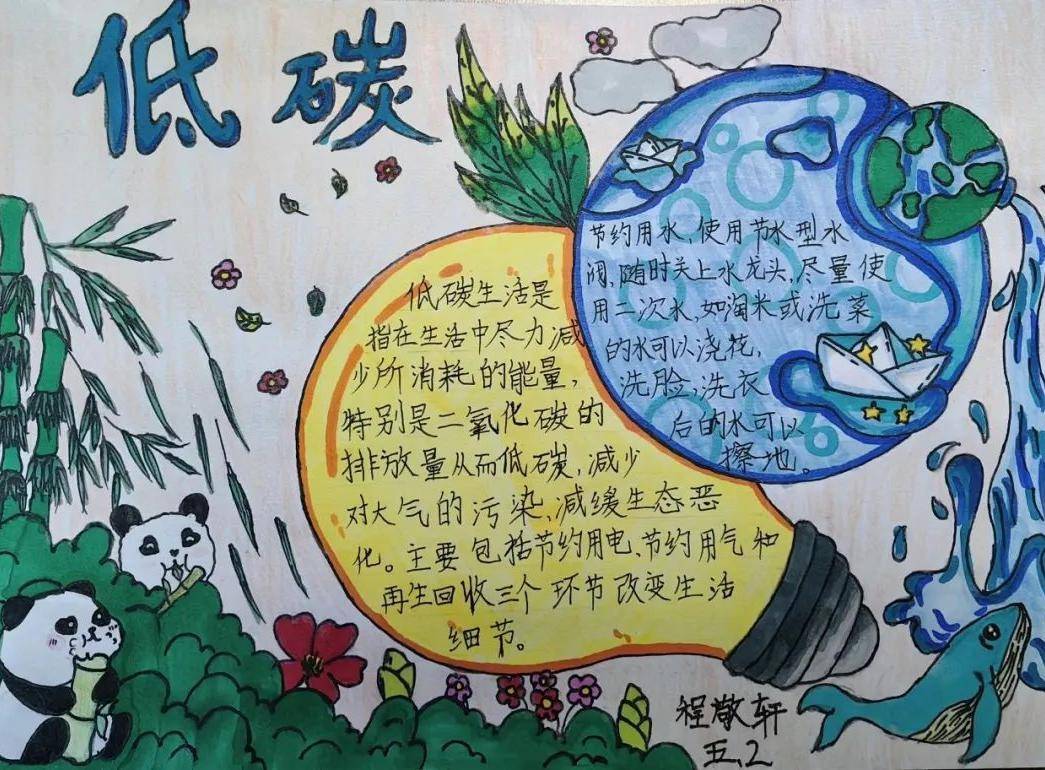 低碳
低碳生活是
指在生活中尽力减
少所消耗的能量，
特别是二氧化碳的
排放量从而低碳，减少
对大气的污染、减缓生态恶
化。主要包括节约用电、节约用气和
再生回收三个环节改变生活
细节。
节约用水，使用节水型水
阀，随时关上水龙头，尽量使
用二次水，如淘米或洗菜
的水可以浇花，
洗脸，洗衣
后的水可以
擦地。
程敬轩
五、2